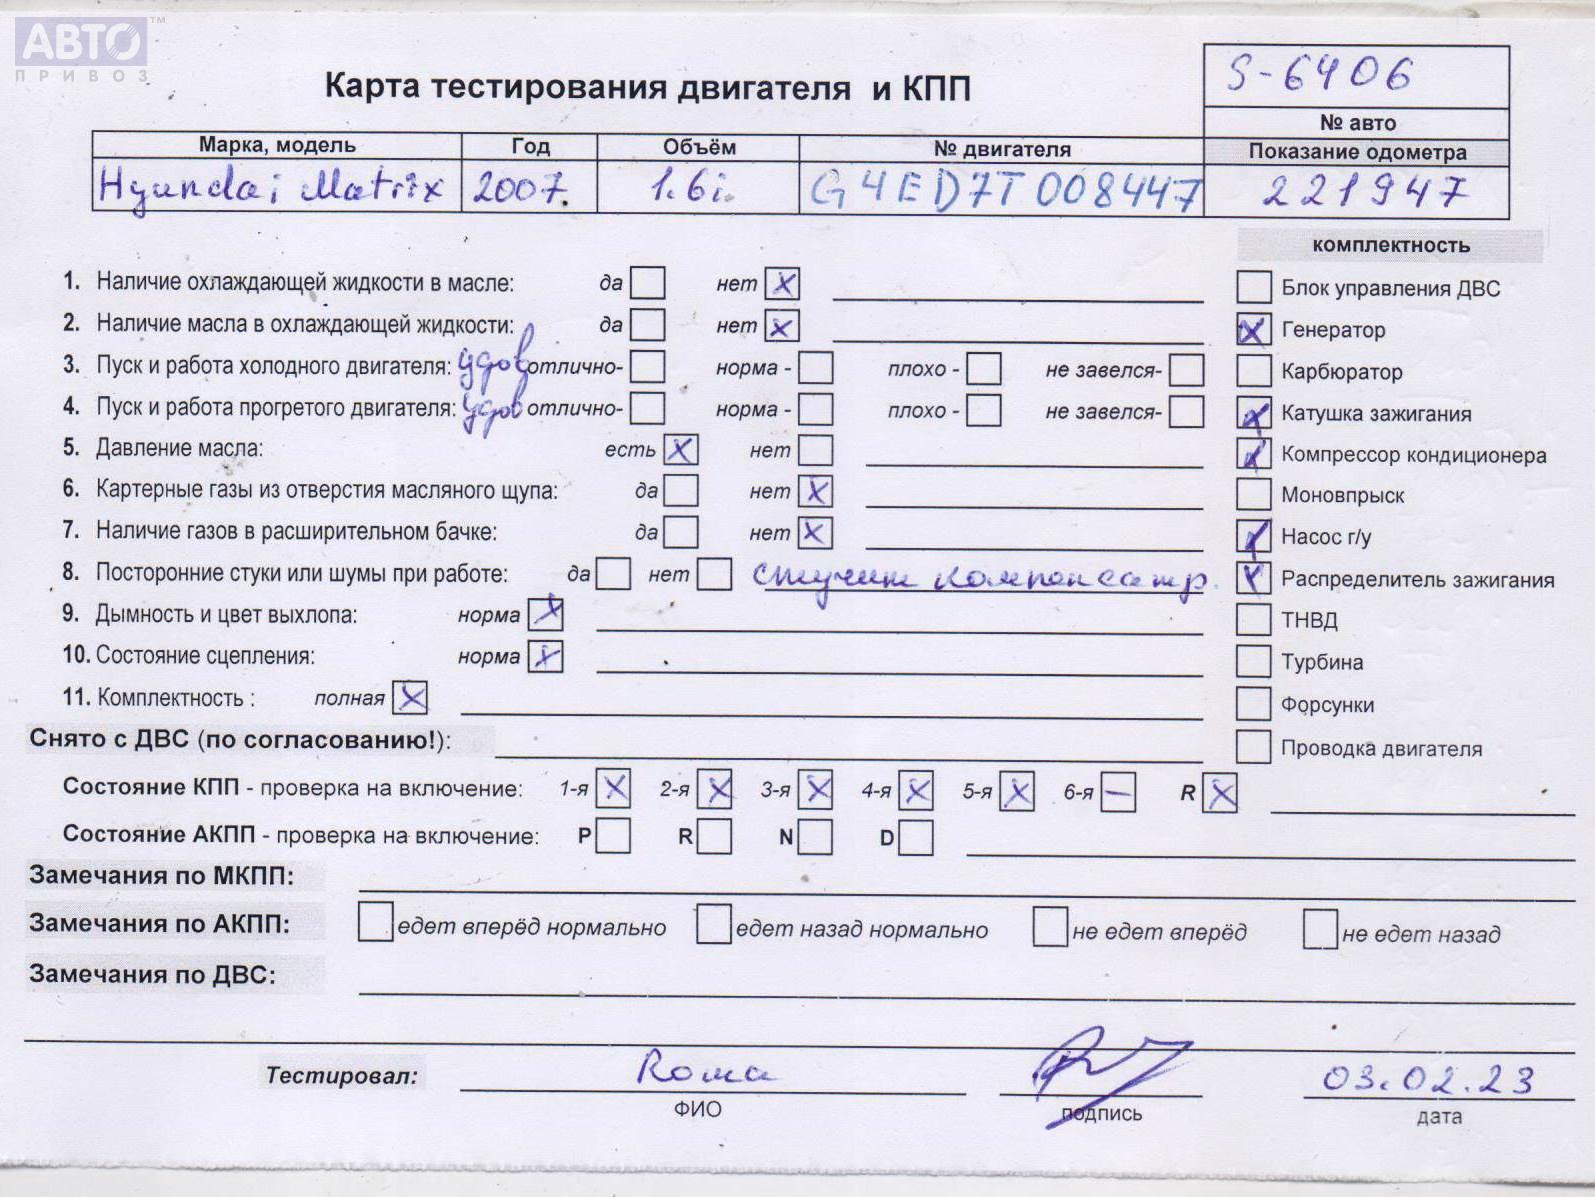 АВТО™
ПРИВОЗ
S-6406
Карта тестирования двигателя и КПП
№ авто
Марка, модель Год Объём № двигателя Показание одометра
Hyundai Matrix 2007. 1.6i. G4ED7T008447 221947
комплектность
1. Наличие охлаждающей жидкости в масле: да нет X
Блок управления ДВС
2. Наличие масла в охлаждающей жидкости: да нет X
X Генератор
3. Пуск и работа холодного двигателя: удов отлично- норма - плохо - не завелся-
Карбюратор
4. Пуск и работа прогретого двигателя: удов отлично- норма - плохо - не завелся-
X Катушка зажигания
5. Давление масла: есть X нет
X Компрессор кондиционера
6. Картерные газы из отверстия масляного щупа: да нет X
Моновпрыск
7. Наличие газов в расширительном бачке: да нет X
X Насос г/у
8. Посторонние стуки или шумы при работе: да нет стучит компенсатр.
X Распределитель зажигания
9. Дымность и цвет выхлопа: норма X
ТНВД
10. Состояние сцепления: норма X
Турбина
11. Комплектность : полная X
Форсунки
Снято с ДВС (по согласованию!):
Проводка двигателя
Состояние КПП - проверка на включение: 1-я X 2-я X 3-я X 4-я X 5-я X 6-я — R X
Состояние АКПП - проверка на включение: P R N D
Замечания по МКПП:
Замечания по АКПП: едет вперёд нормально едет назад нормально не едет вперёд не едет назад
Замечания по ДВС:
Тестировал: Rома 03.02.23
ФИО подпись дата